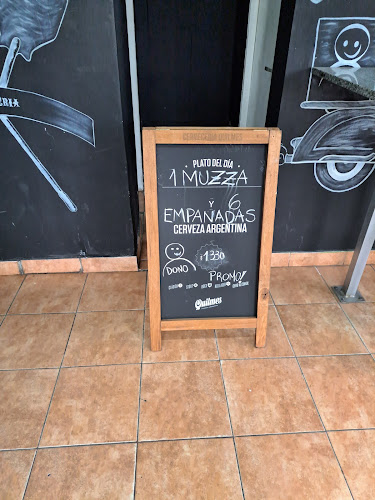 ERIA
PLATO DEL DÍA
1 MUZZA
Y 6
EMPAÑADAS
CERVEZA ARGENTINA
DONO
$1330
PROMO!
Quilmes